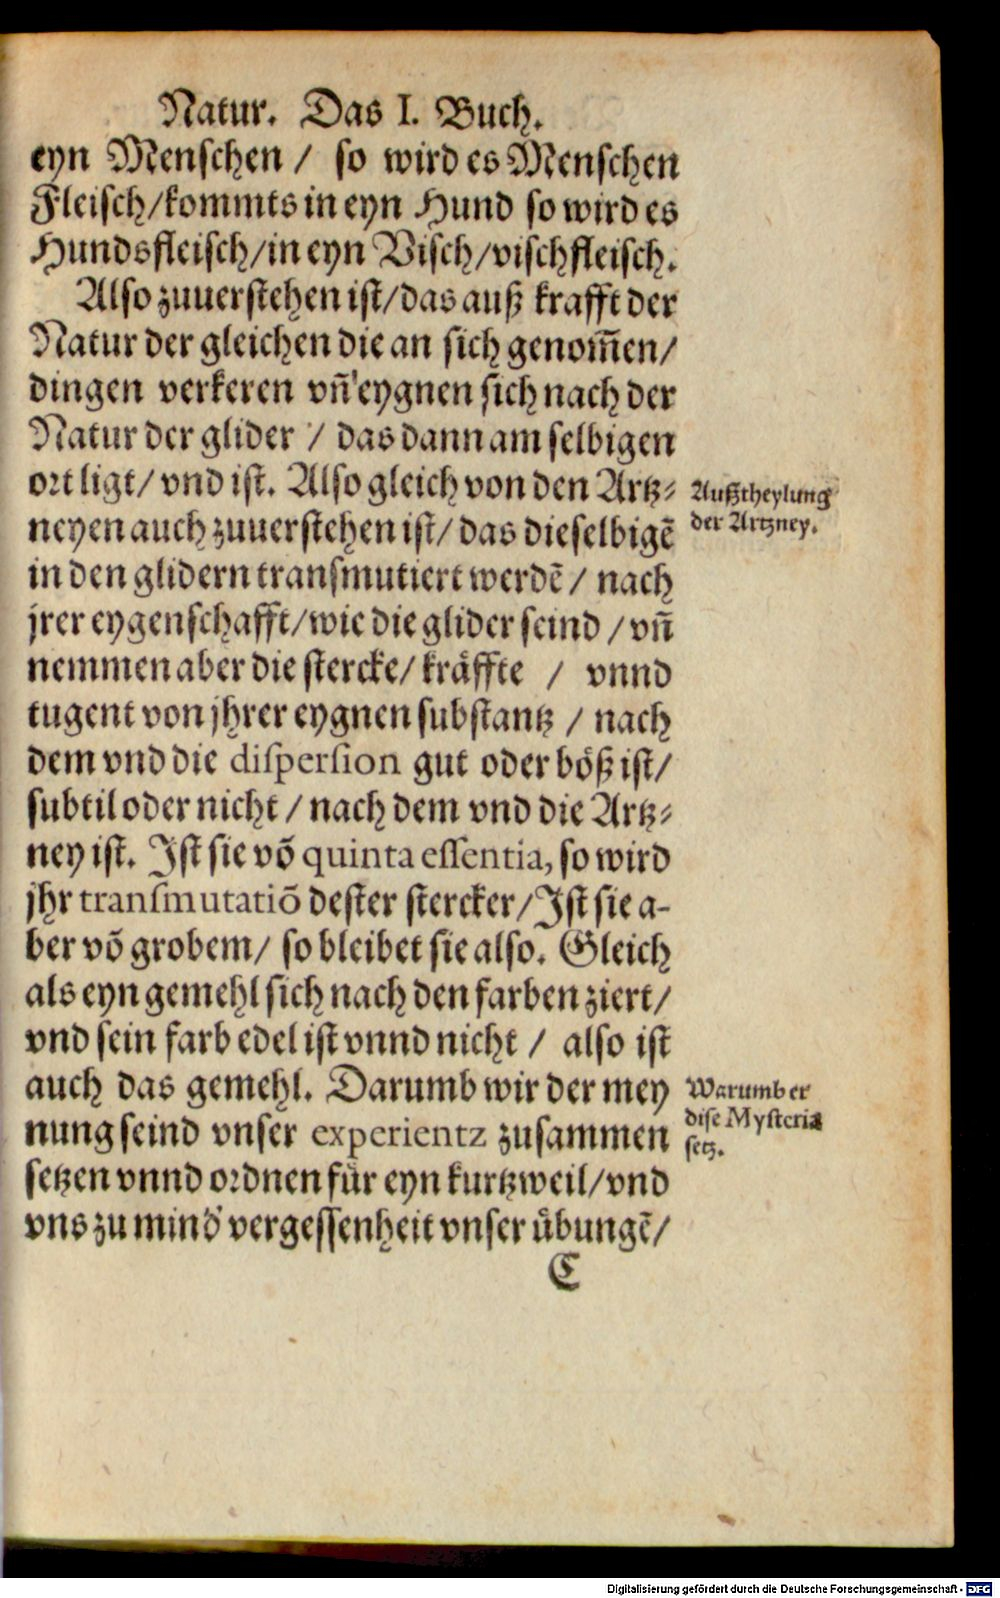 Natur. Das I. Buch.
eyn Menschen / so wird es Menschen
Fleisch/kommts in eyn Hund so wird es
Hundsfleisch/in eyn Visch/vischfleisch.
Also zuuerstehen ist/das auß krafft der
Natur der gleichen die an sich genom̄en/
dingen verkeren vn̄ eygnen sich nach der
Natur der glider / das dann am selbigen
ort ligt/ vnd ist. Also gleich von den Artz⸗
neyen auch zuuerstehen ist/ das dieselbigē
in den glidern transmutiert werdē / nach
jrer eygenschafft/wie die glider seind / vn̄
nemmen aber die stercke/ kräffte / vnnd
tugent von jhrer eygnen substantz / nach
dem vnd die dispersion gut oder böß ist/
subtil oder nicht / nach dem vnd die Artz⸗
ney ist. Ist sie vō quinta essentia, so wird
jhr transmutatiō dester stercker/Ist sie a-
ber vō grobem/ so bleibet sie also. Gleich
als eyn gemehl sich nach den farben ziert/
vnd sein farb edel ist vnnd nicht / also ist
auch das gemehl. Darumb wir der mey
nung seind vnser experientz zusammen
setzen vnnd ordnen für eyn kurtzweil/vnd
vns zu mind' vergessenheit vnser übungē/
C
Außtheylung
der Artzney.
Warumb er
dise Mysteria
setz.
Digitalisierung gefördert durch die Deutsche Forschungsgemeinschaft - DFG